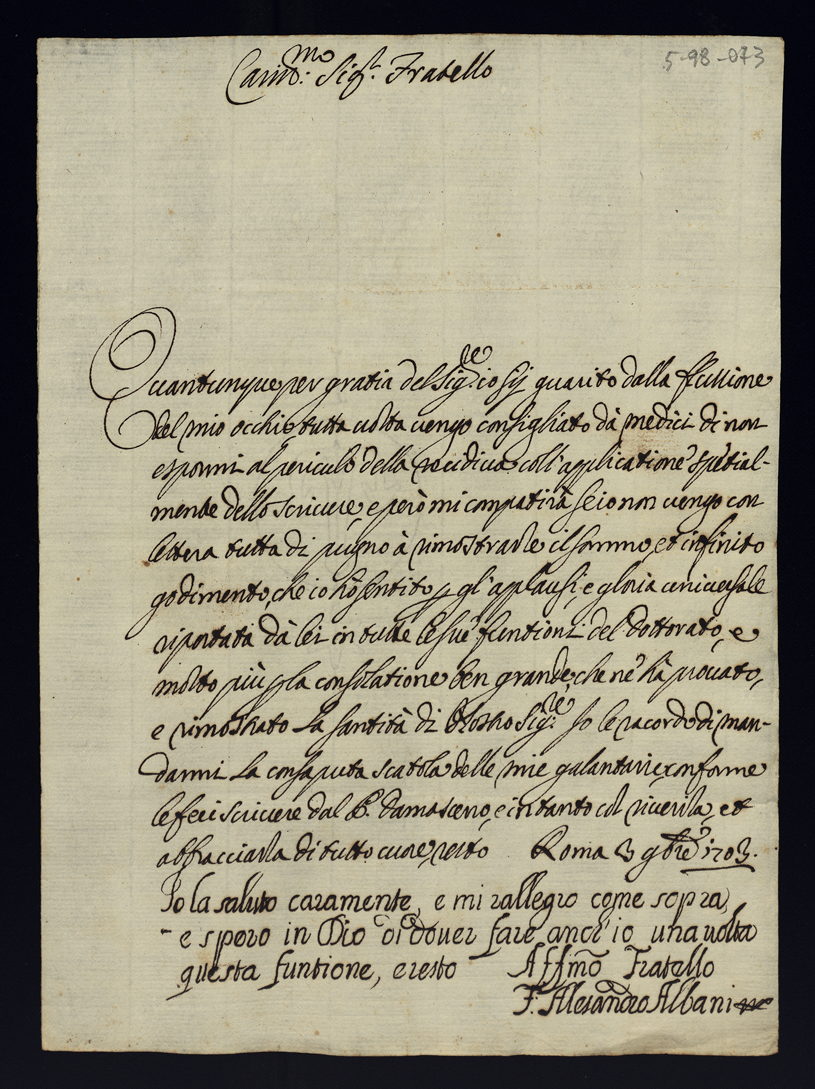 Carmo.mo Sigr. Fratello
5-98-073
Quantunque per gratia del Sig.re io sij guarito dalla flussione
del mio occhio tutta uolta uengo consigliato dà medici di non
espormi al periculo della recidiua coll'applicatione spetial-
mente dello scriuere, e però mi compatirà se io non uengo con
lettera tutta di pugno à rimostrarle il sommo, et infinito
godimento, che io hò sentito p gl'applausi, e gloria uniuersale
riportata dà lei in tutte le sue funtioni del Dottorato, e
molto più p la consolatione ben grande, che ne hà prouato,
e rimostrato la santità di Nostro Sig.re Io le racordo di man-
darmi la consaputa scatola delle mie galantarie conforme
le feci scriuere dal P. Damasceno, e intanto col riuerirla, et
abbracciarla di tutto cuore, resto Roma 3 9bre 1703.
Io la saluto caramente, e mi rallegro come sopra,
e spero in Dio di douer fare anch'io una uolta
questa funtione, e resto Affmo Fratello
F. Alesandro Albani